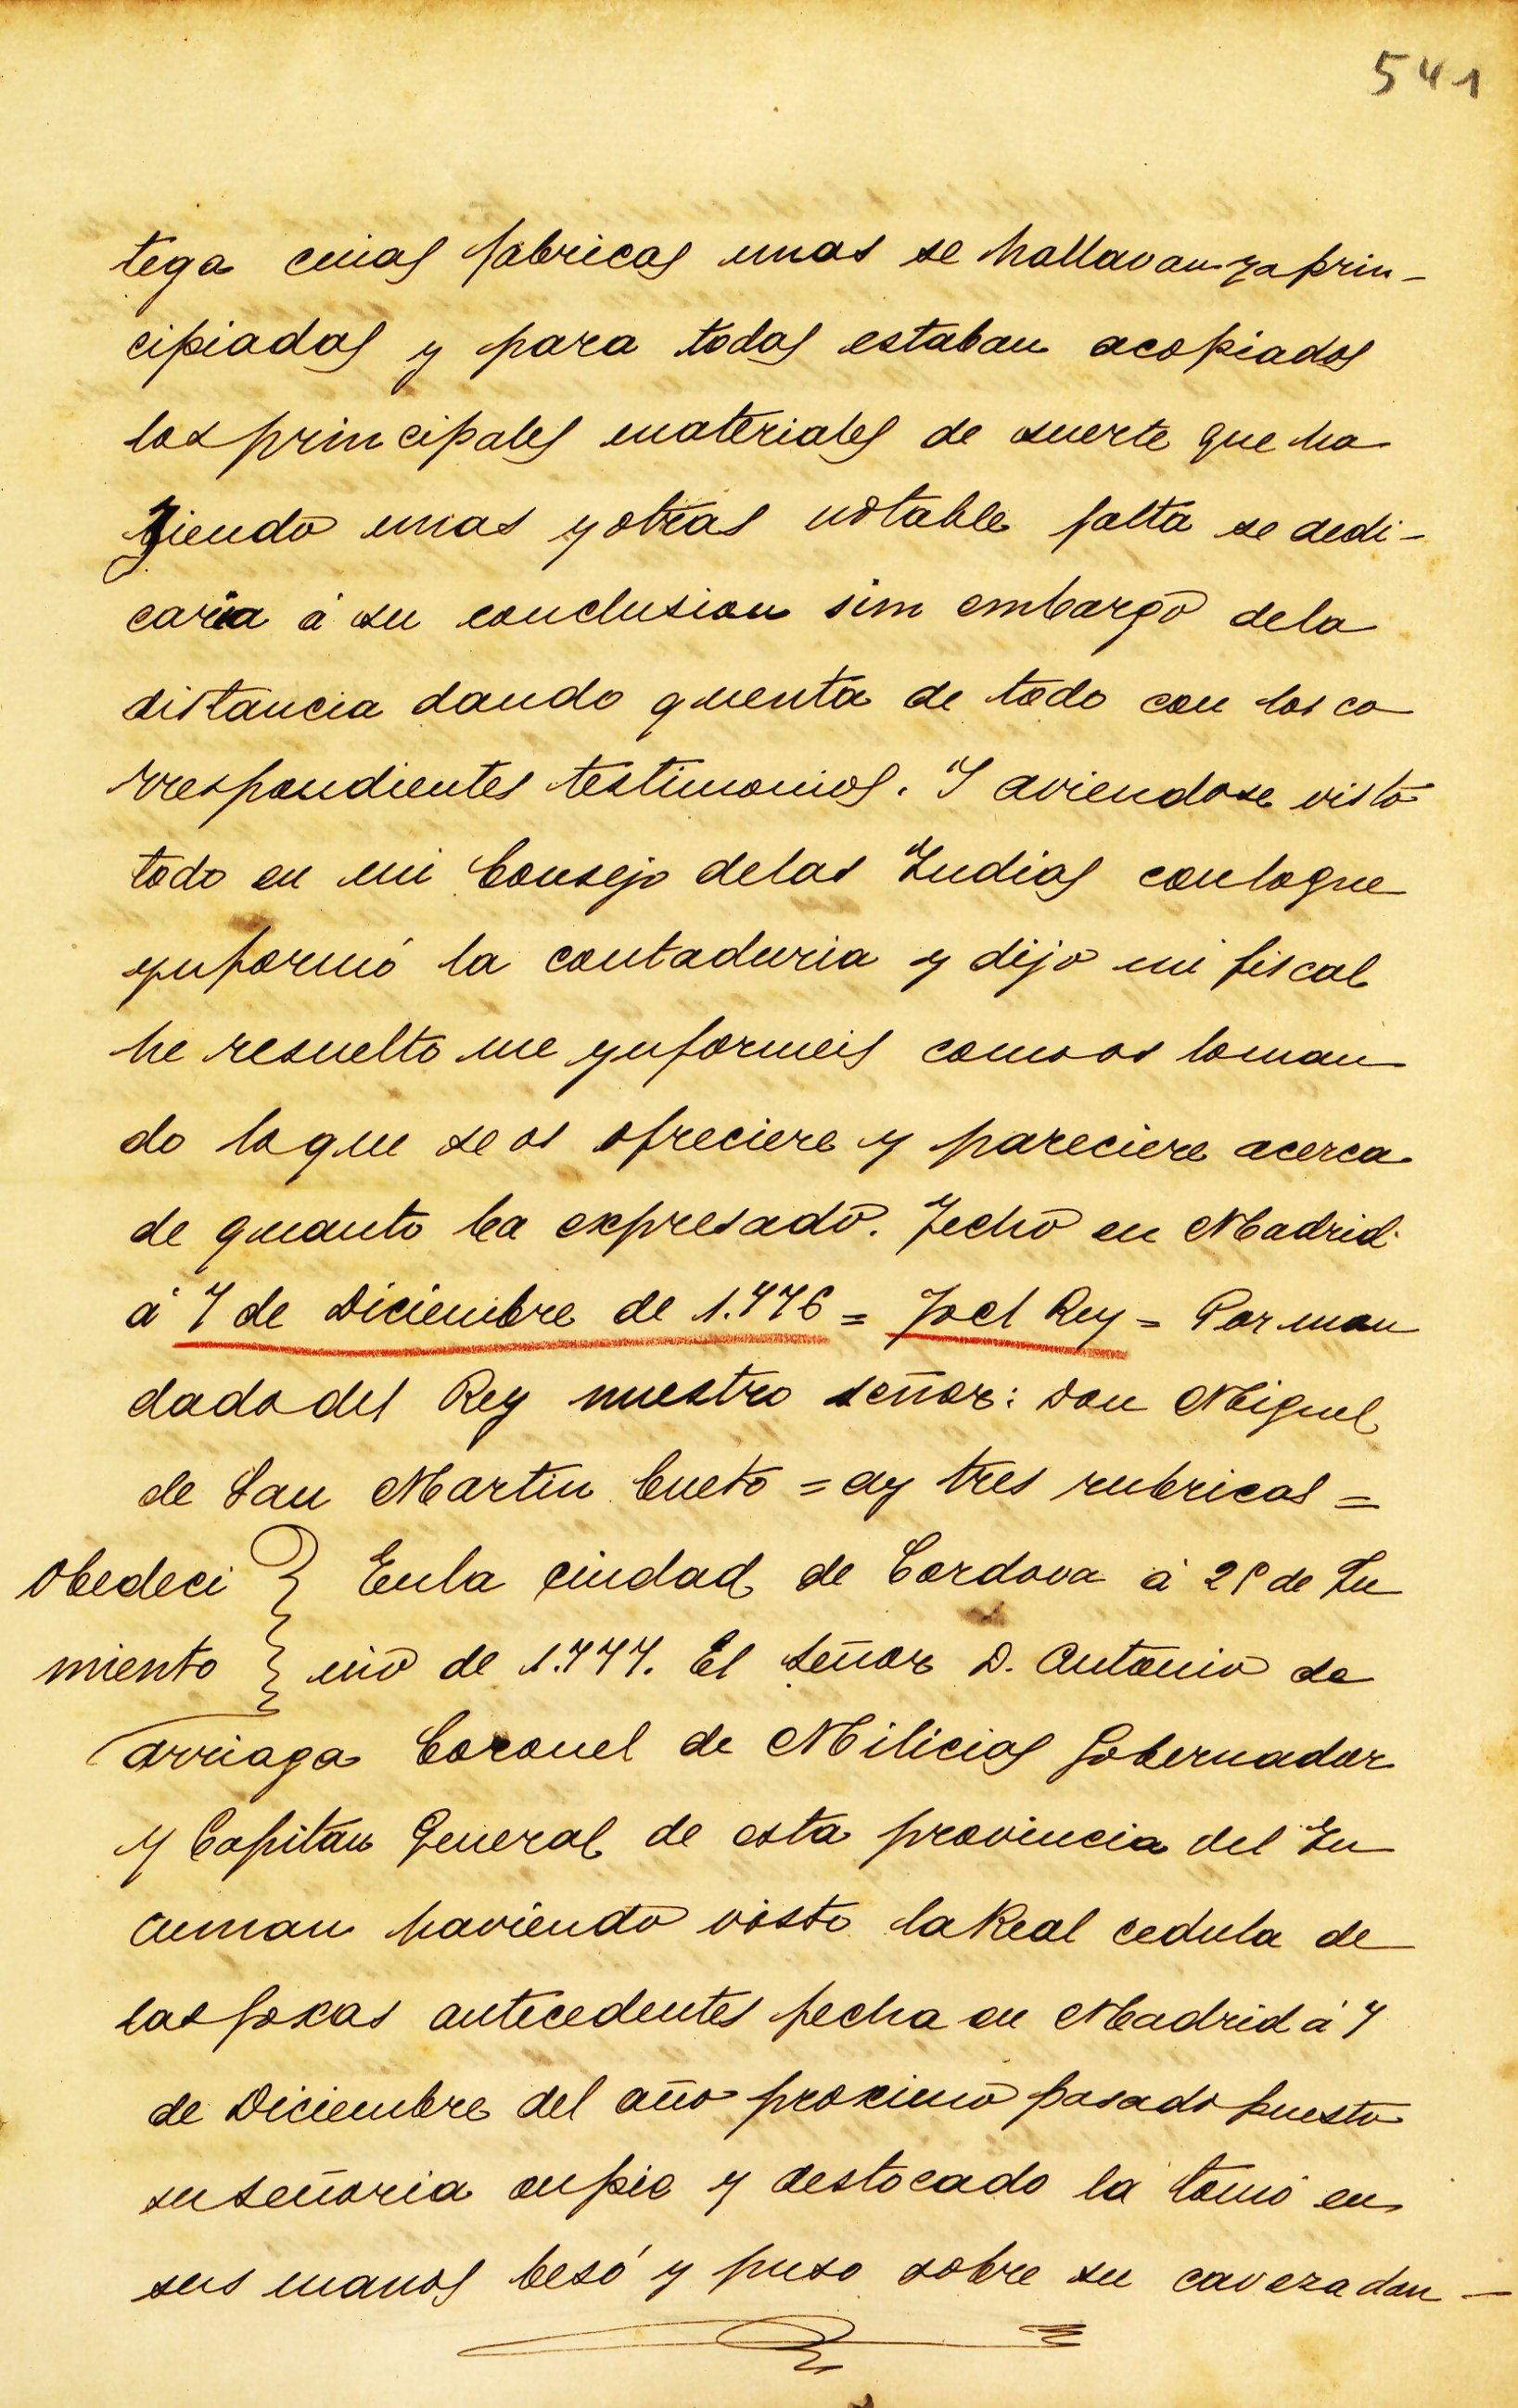 541
tega cuias fabricas unas se hallavan ya prin-
cipiadas y para todas estaban acopiados
los principales materiales de suerte que ha
ziendo unas y otras notable falta se dedi-
caria á su conclusion sim embargo dela
distancia dando quenta de todo con los co
rrespondientes testimonios. Y aviendose visto
todo en mi Consejo delas Indias conloque
ynformó la contaduria y dijo mi fiscal
he resuelto me ynformeis como os loman
do loque se os ofreciere y pareciere acerca
de quanto ba expresado. Fecho en Madrid
á 7 de Diciembre de 1.776 = Yo el Rey = Por man
dado del Rey nuestro señor: Don Miguel
de San Martin Cueto = ay tres rubricas =
Obedeci Enla ciudad de Cordova á de Ju
miento nio de 1.777. El señor D. Antonio de
Arriaga Coronel de Milicias Gobernador
y Capitan General de esta provincia del Tu
cuman haviendo visto la Real cedula de
las foxas antecedentes fecha en Madrid á 7
de Diciembre del año proximo pasado puesto
su señoria enpie y destocado la tomó en
sus manos besó y puso sobre su caveza dan-